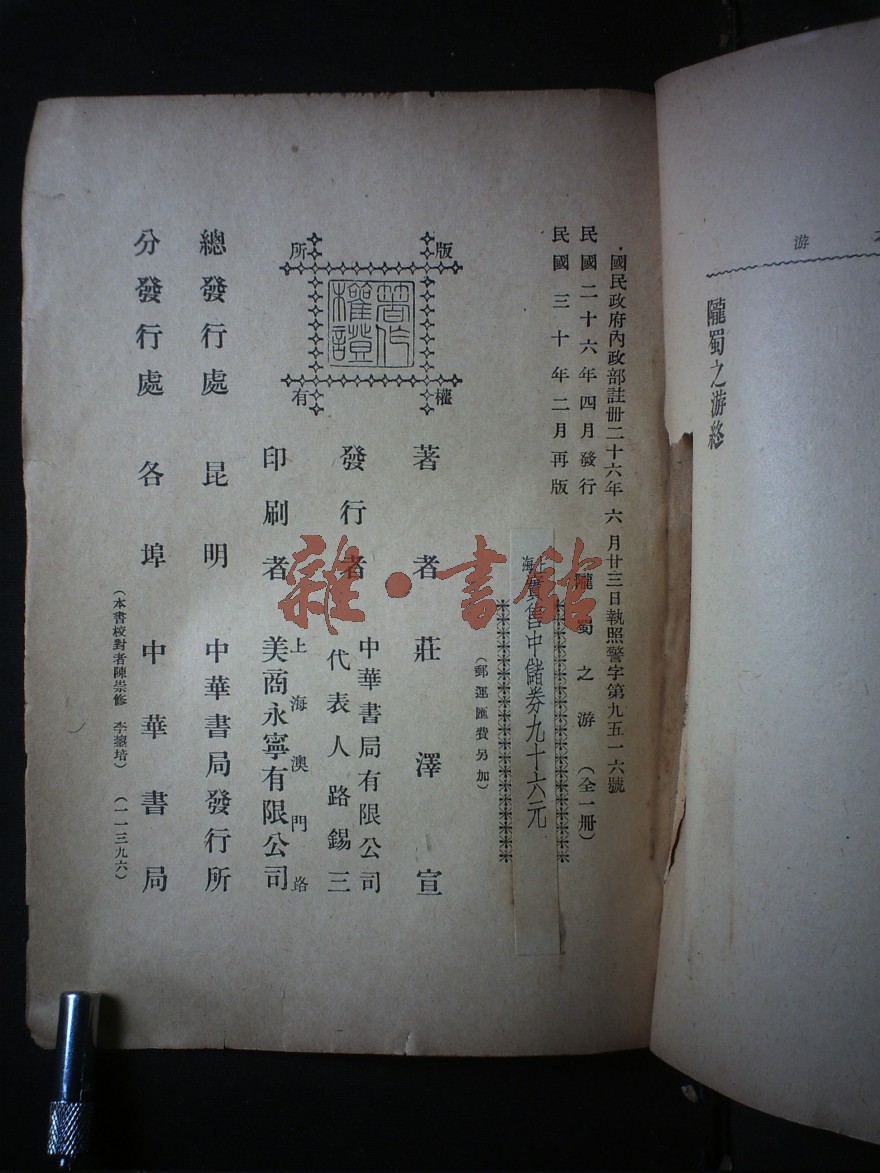 游
隴蜀之游終
國民政府內政部註冊二十六年六月廿三日執照警字第九五一六號
民國二十六年四月發行
民國三十年二月再版
隴蜀之游（全一冊）
上海實售中儲券九十六元
（郵運匯費另加）
版權所有
著作權證
著者 莊澤宣
發行者 中華書局有限公司
代表人路錫三
印刷者 上海澳門路
美商永寧有限公司
總發行處 昆明 中華書局發行所
分發行處 各埠 中華書局
（本書校對者陳崇修 李培）（一一三九六）
雜·書館